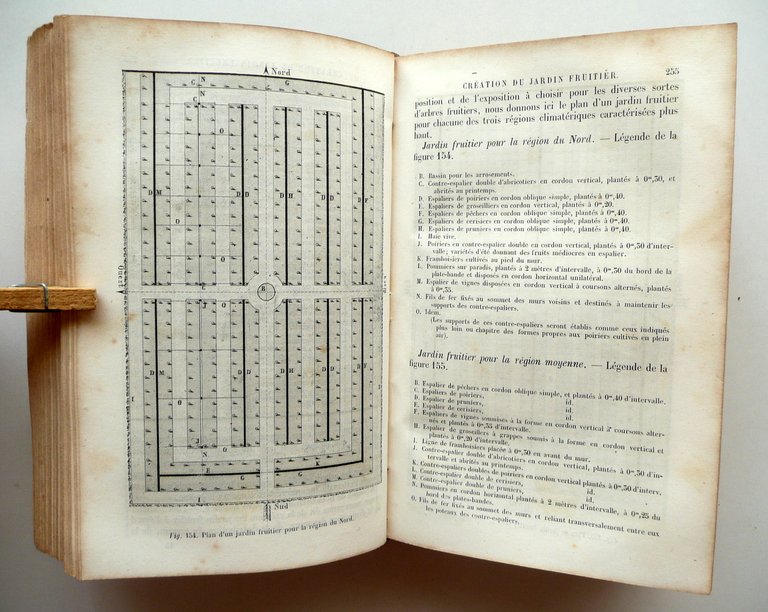 Nord
N
C
G
C
O
D M
D D
D H
D D
D F
O
Ouest
C
O
B
O
D M
D D
D H
D D
D F
O
J
E
K
G
G
I
Sud
Fig. 154. Plan d'un jardin fruitier pour la région du Nord.
CRÉATION DU JARDIN FRUITIER. 255
position et de l'exposition à choisir pour les diverses sortes
d'arbres fruitiers, nous donnons ici le plan d'un jardin fruitier
pour chacune des trois régions climatériques caractérisées plus
haut.
Jardin fruitier pour la région du Nord. — Légende de la
figure 154.
B. Bassin pour les arrosements.
C. Contre-espalier double d'abricotiers en cordon vertical, plantés à 0m,30, et
abrités au printemps.
D. Espaliers de poiriers en cordon oblique simple, plantés à 0m,40.
E. Espaliers de groseilliers en cordon vertical, plantés à 0m,20.
F. Espaliers de pêchers en cordon oblique simple, plantés à 0m,40.
G. Espaliers de cerisiers en cordon oblique simple, plantés à 0m,40.
H. Espaliers de pruniers en cordon oblique simple, plantés à 0m,40.
I. Haie vive.
J. Poiriers en contre-espalier double en cordon vertical, plantés à 0m,30 d'inter-
valle; variétés d'été donnant des fruits médiocres en espalier.
K. Framboisiers cultivés au pied du mur.
L. Pommiers sur paradis, plantés à 2 mètres d'intervalle, à 0m,30 du bord de la
plate-bande et disposés en cordon horizontal unilatéral.
M. Espalier de vignes disposées en cordon vertical à coursons alternés, plantés
à 0m,35.
N. Fils de fer fixés au sommet des murs voisins et destinés à maintenir les
supports des contre-espaliers.
O. Idem.
(Les supports de ces contre-espaliers seront établis comme ceux indiqués
plus loin au chapitre des formes propres aux poiriers cultivés en plein
air).
Jardin fruitier pour la région moyenne. — Légende de la
figure 155.
B. Espalier de pêchers en cordon oblique simple, et plantés à 0m,40 d'intervalle.
C. Espaliers de poiriers, id.
D. Espalier de pruniers, id.
E. Espalier de cerisiers, id.
F. Espaliers de vignes soumises à la forme en cordon vertical à coursons alter-
nés et plantés à 0m,35 d'intervalle.
H. Espalier de groseillers à grappes soumis à la forme en cordon vertical et
plantés à 0m,20 d'intervalle.
I. Ligne de framboisiers placée à 0m,50 en avant du mur.
J. Contre-espalier double d'abricotiers en cordon vertical, plantés à 0m,30 d'in-
tervalle et abrités au printemps.
K. Contre-espaliers doubles de poiriers en cordon vertical plantés à 0m,30 d'interv.
L. Contre-espalier double de cerisiers, id.
M. Contre-espalier double de pruniers, id.
N. Pommiers en cordon horizontal plantés à 2 mètres d'intervalle, à 0m,25 du
bord des plates-bandes.
O. Fils de fer fixés au sommet des murs et reliant transversalement entre eux
les poteaux des contre-espaliers.